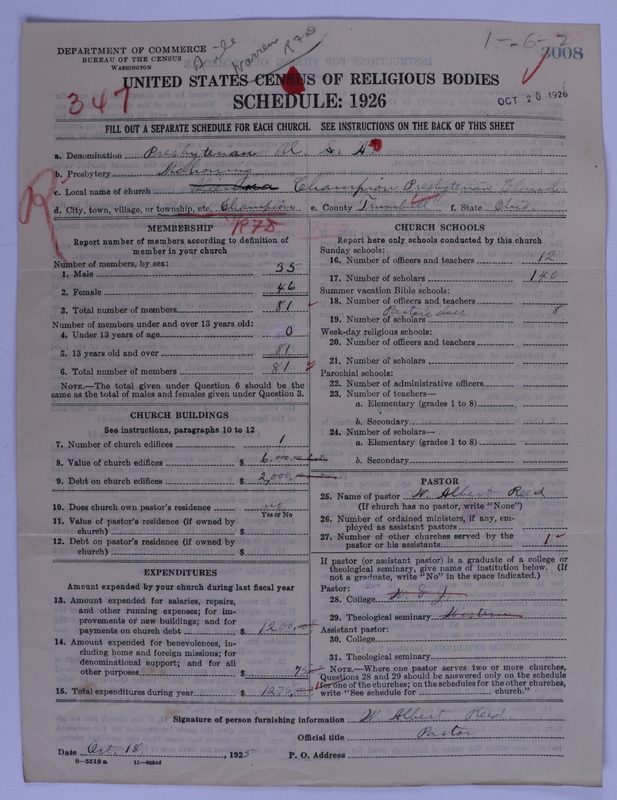 1-6-2
3008
Warren R78
DEPARTMENT OF COMMERCE
BUREAU OF THE CENSUS
WASHINGTON
UNITED STATES CENSUS OF RELIGIOUS BODIES
347
SCHEDULE: 1926
OCT 20 1926
FILL OUT A SEPARATE SCHEDULE FOR EACH CHURCH. SEE INSTRUCTIONS ON THE BACK OF THIS SHEET
a. Denomination Presbyterian
b. Presbytery Mahoning
c. Local name of church Champion Presbyterian Church
d. City, town, village, or township, etc. Champion e. County Trumbull f. State Ohio
R78
MEMBERSHIP
Report number of members according to definition of
member in your church
Number of members, by sex:
1. Male 35
2. Female 46
3. Total number of members 81
Number of members under and over 13 years old:
4. Under 13 years of age 0
5. 13 years old and over 81
6. Total number of members 81
NOTE.—The total given under Question 6 should be the
same as the total of males and females given under Question 3.
CHURCH BUILDINGS
See instructions, paragraphs 10 to 12
7. Number of church edifices 1
8. Value of church edifices $ 6,000
9. Debt on church edifices $ 2,000
10. Does church own pastor's residence no
Yes or No
11. Value of pastor's residence (if owned by
church) $
12. Debt on pastor's residence (if owned by
church) $
EXPENDITURES
Amount expended by your church during last fiscal year
13. Amount expended for salaries, repairs,
and other running expenses; for im-
provements or new buildings; and for
payments on church debt $ 1200
14. Amount expended for benevolences, in-
cluding home and foreign missions; for
denominational support; and for all
other purposes $ 75
15. Total expenditures during year $ 1275
CHURCH SCHOOLS
Report here only schools conducted by this church
Sunday schools:
16. Number of officers and teachers 12
17. Number of scholars 140
Summer vacation Bible schools:
18. Number of officers and teachers
Pastors class
19. Number of scholars 8
Week-day religious schools:
20. Number of officers and teachers
21. Number of scholars
Parochial schools:
22. Number of administrative officers
23. Number of teachers—
a. Elementary (grades 1 to 8)
b. Secondary
24. Number of scholars—
a. Elementary (grades 1 to 8)
b. Secondary
PASTOR
25. Name of pastor W. Albert Reed
(If church has no pastor, write "None")
26. Number of ordained ministers, if any, em-
ployed as assistant pastors
27. Number of other churches served by the
pastor or his assistants 1
If pastor (or assistant pastor) is a graduate of a college or
theological seminary, give name of institution below. (If
not a graduate, write "No" in the space indicated.)
Pastor:
28. College W & J
29. Theological seminary Western
Assistant pastor:
30. College
31. Theological seminary
NOTE.—Where one pastor serves two or more churches,
Questions 28 and 29 should be answered only on the schedule
for one of the churches; on the schedules for the other churches,
write "See schedule for church."
Signature of person furnishing information W. Albert Reed
Official title Pastor
Date Oct. 18, 1925 P. O. Address
8—5518a 11—9054d